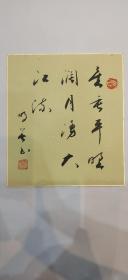 星垂平野
阔月涌大
江流